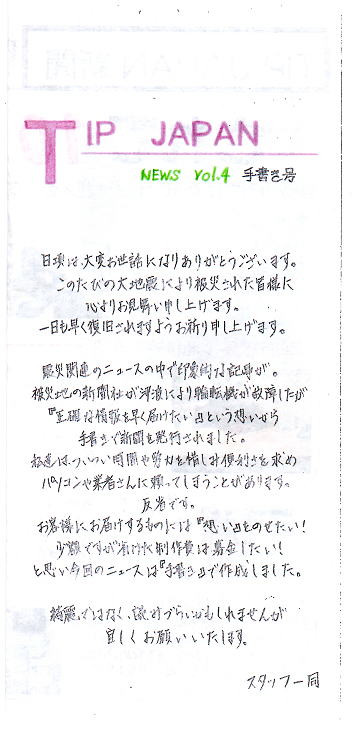 TIP JAPAN
NEWS Vol.4 手書き号
日頃は、大変お世話になりありがとうございます。
このたびの大地震により被災された皆様に
心よりお見舞い申し上げます。
一日も早く復旧されますようお祈り申し上げます。
震災関連のニュースの中で印象的な記事が。
被災地の新聞社が津波により輪転機が故障したが
『正確な情報を早く届けたい』という想いから
手書きで新聞を発行されました。
私達は、ついつい時間や労力を惜しみ便利さを求め
パソコンや業者さんに頼ってしまうことがあります。
反省です。
お客様にお届けするものには『想い』をのせたい！
少額ですが浮いた制作費は募金したい！
と思い今回のニュースは『手書き』で作成しました。
綺麗ではなく、読みづらいかもしれませんが
宜しくお願いいたします。
スタッフ一同